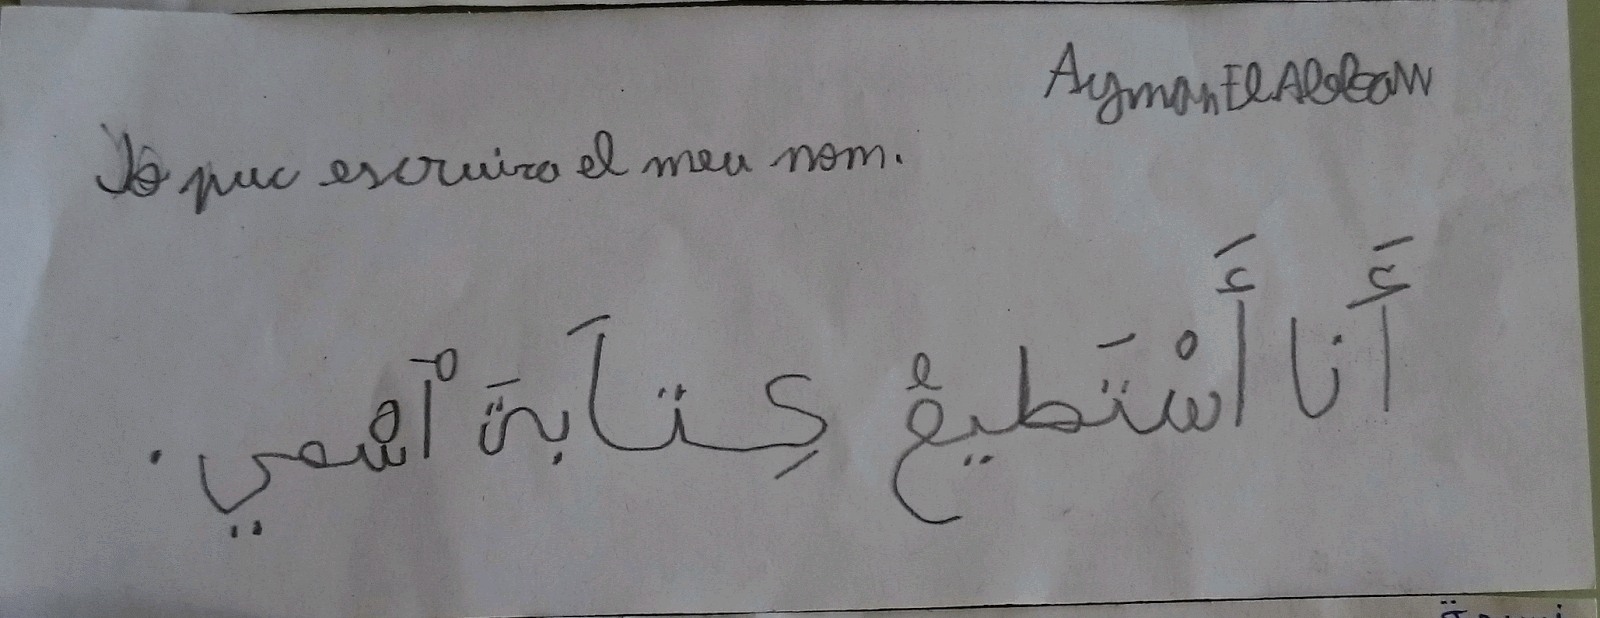 Ayman El
Jo puc escruire el meu nom.
أَنا أَسْتَطيعُ كِتابَةَ اَسْمي.